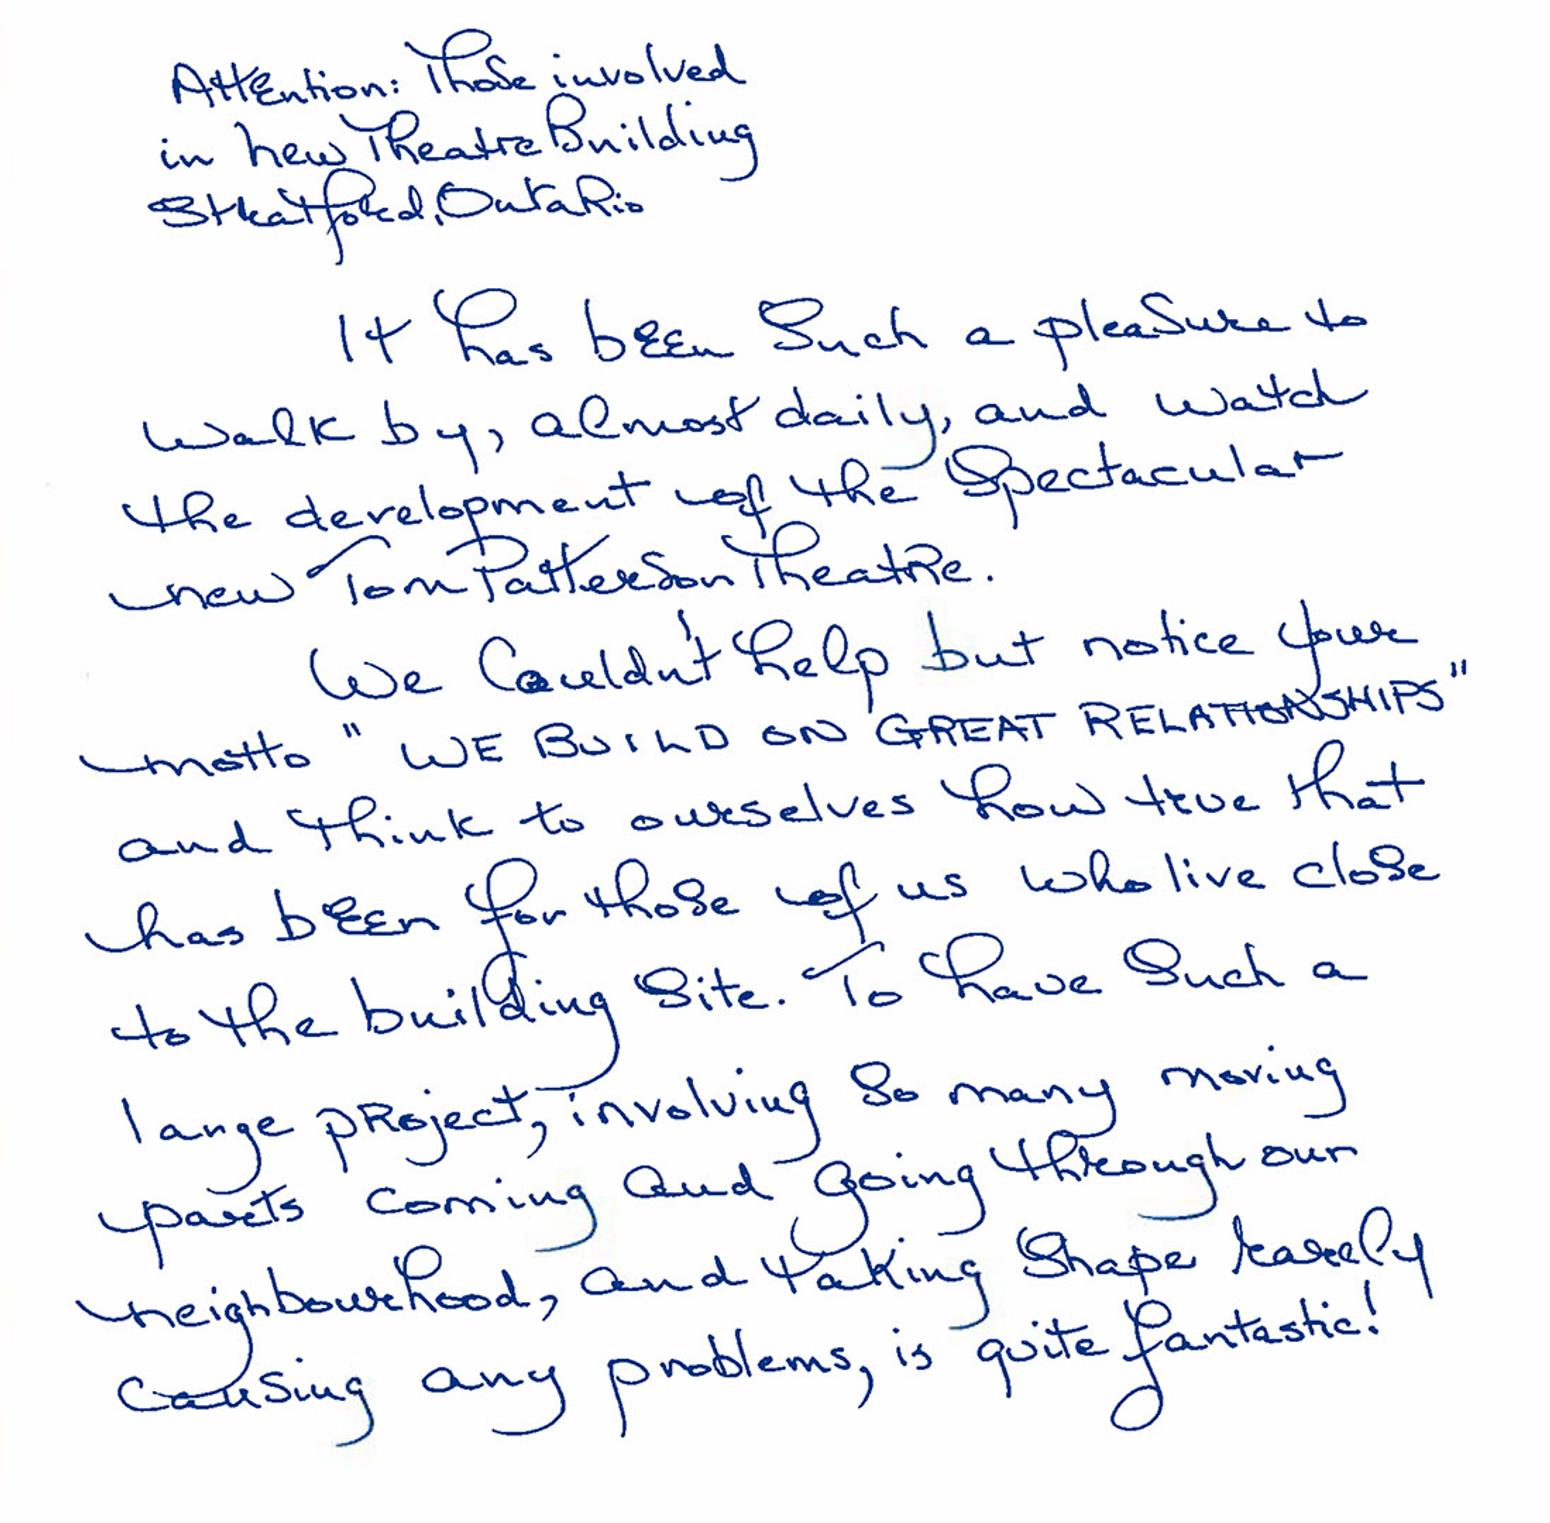 Attention: Those involved
in new Theatre Building
Stratford, Ontario
It has been such a pleasure to
walk by, almost daily, and watch
the development of the spectacular
new Tom Patterson Theatre.
We couldn't help but notice your
motto "WE BUILD ON GREAT RELATIONSHIPS"
and think to ourselves how true that
has been for those of us who live close
to the building site. To have such a
large project, involving so many moving
parts coming and going through our
neighbourhood, and taking shape rarely
causing any problems, is quite fantastic!